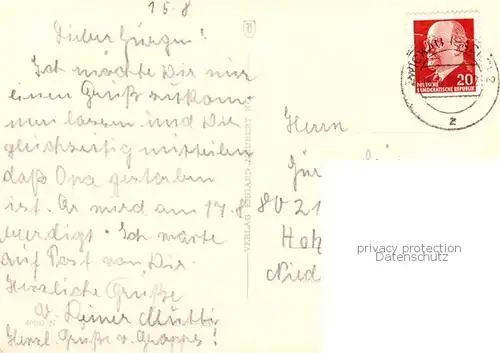 15.8
Lieber Jürgen!
Ich möchte Dir nur
einen Gruß zukom-
men lassen und Dir
gleichzeitig mitteilen
daß Opa gestorben
ist. Er wird am 17.8
beerdigt. Ich warte
auf Post von Dir.
Herzliche Grüße
v. Deiner Mutti
Herzl. Grüße v.
VERLAG ERHARD
20
DEUTSCHE
DEMOKRATISCHE REPUBLIK
z
Herrn
Jür
8021
Hoh
Nied
privacy protection
Datenschutz